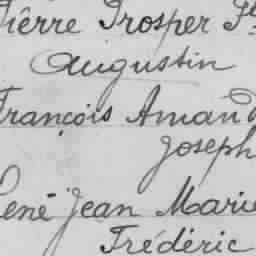 Pierre Prosper
Augustin
François Amand
Joseph
René Jean Marie
Frédéric